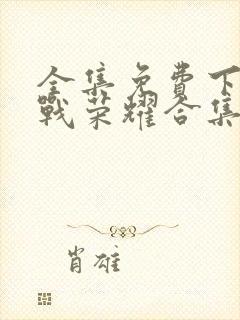 全集免费下
战荣耀合集
肖雄